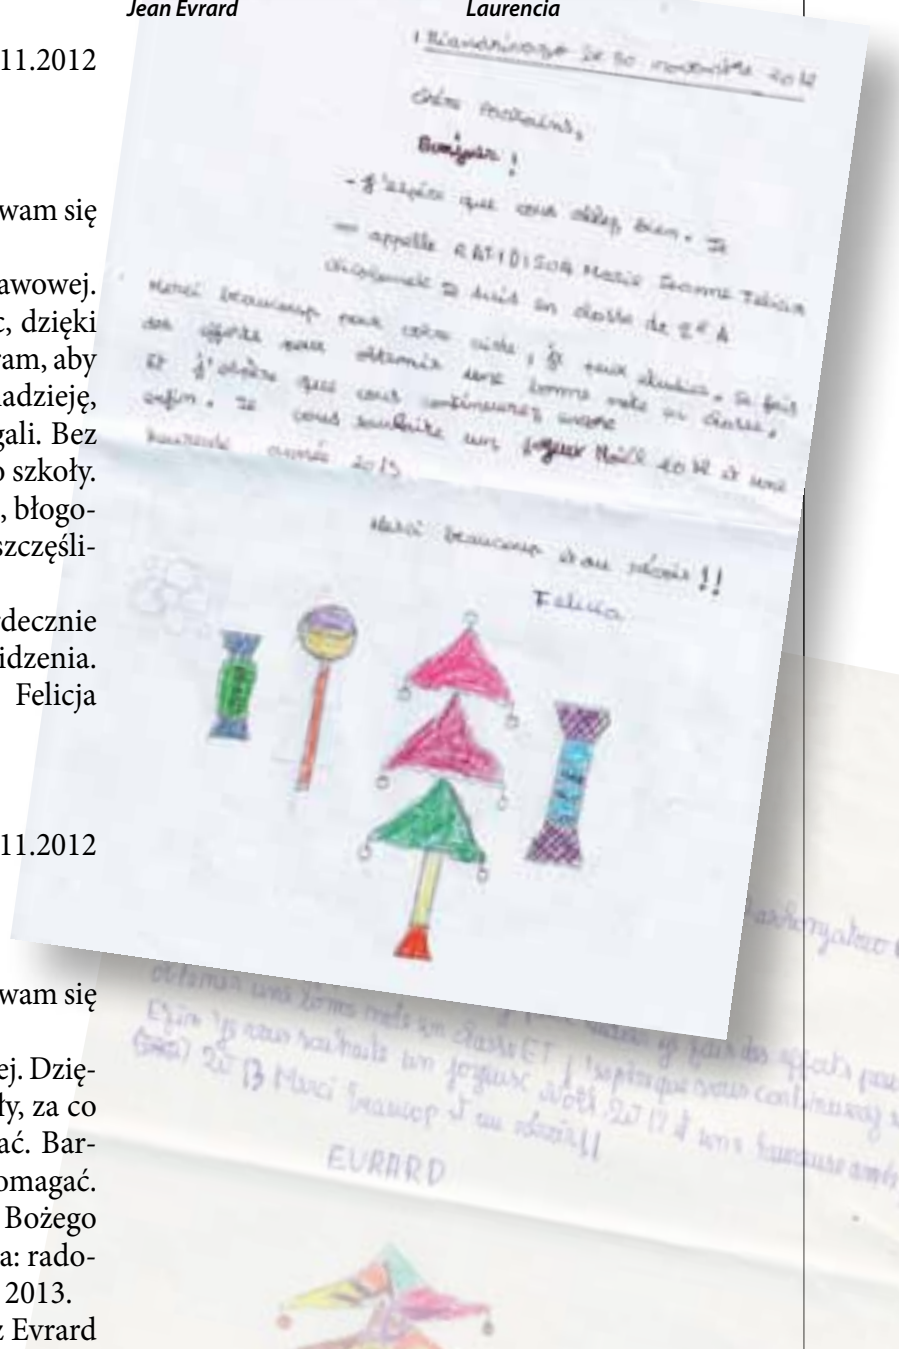 Jean Evrard
Laurencia
11.2012
wam się
awowej.
c, dzięki
ram, aby
adzieję,
gali. Bez
o szkoły.
, błogo-
szczęśli-
decznie
idzenia.
Felicja
11.2012
wam się
ej. Dzię-
ły, za co
ać. Bar-
omagać.
Bożego
a: rado-
2013.
z Evrard
le 30 novembre 2012
Chère
Bonjour !
- J'espère que vous allez bien. Je
appelle Marie Jeanne Felicia
Je suis en classe de
Merci beaucoup pour votre aide, je peux étudier. Je fais
des efforts pour obtenir une bonne note en classe.
Et j'espère que vous continuerez encore
enfin. Je vous souhaite un Joyeux Noël 2012 et une
heureuse année 2013
Merci beaucoup et au revoir !!
Felicia
obtenir une bonne note en classe ET j'
je vous souhaite un joyeux 2012 et une
2013 Merci et au
EVRARD